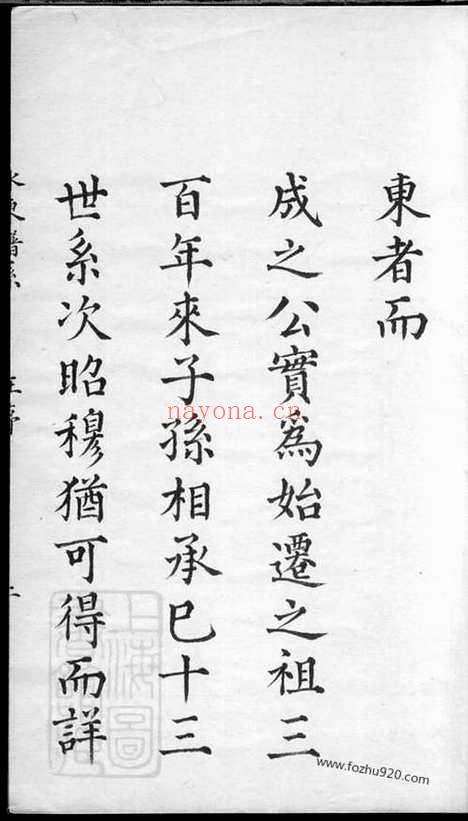 東者而
成之公實為始遷之祖三
百年來子孫相承巳十三
世系次昭穆猶可得而詳
nayona.cn
上海圖
www.fozhu920.com